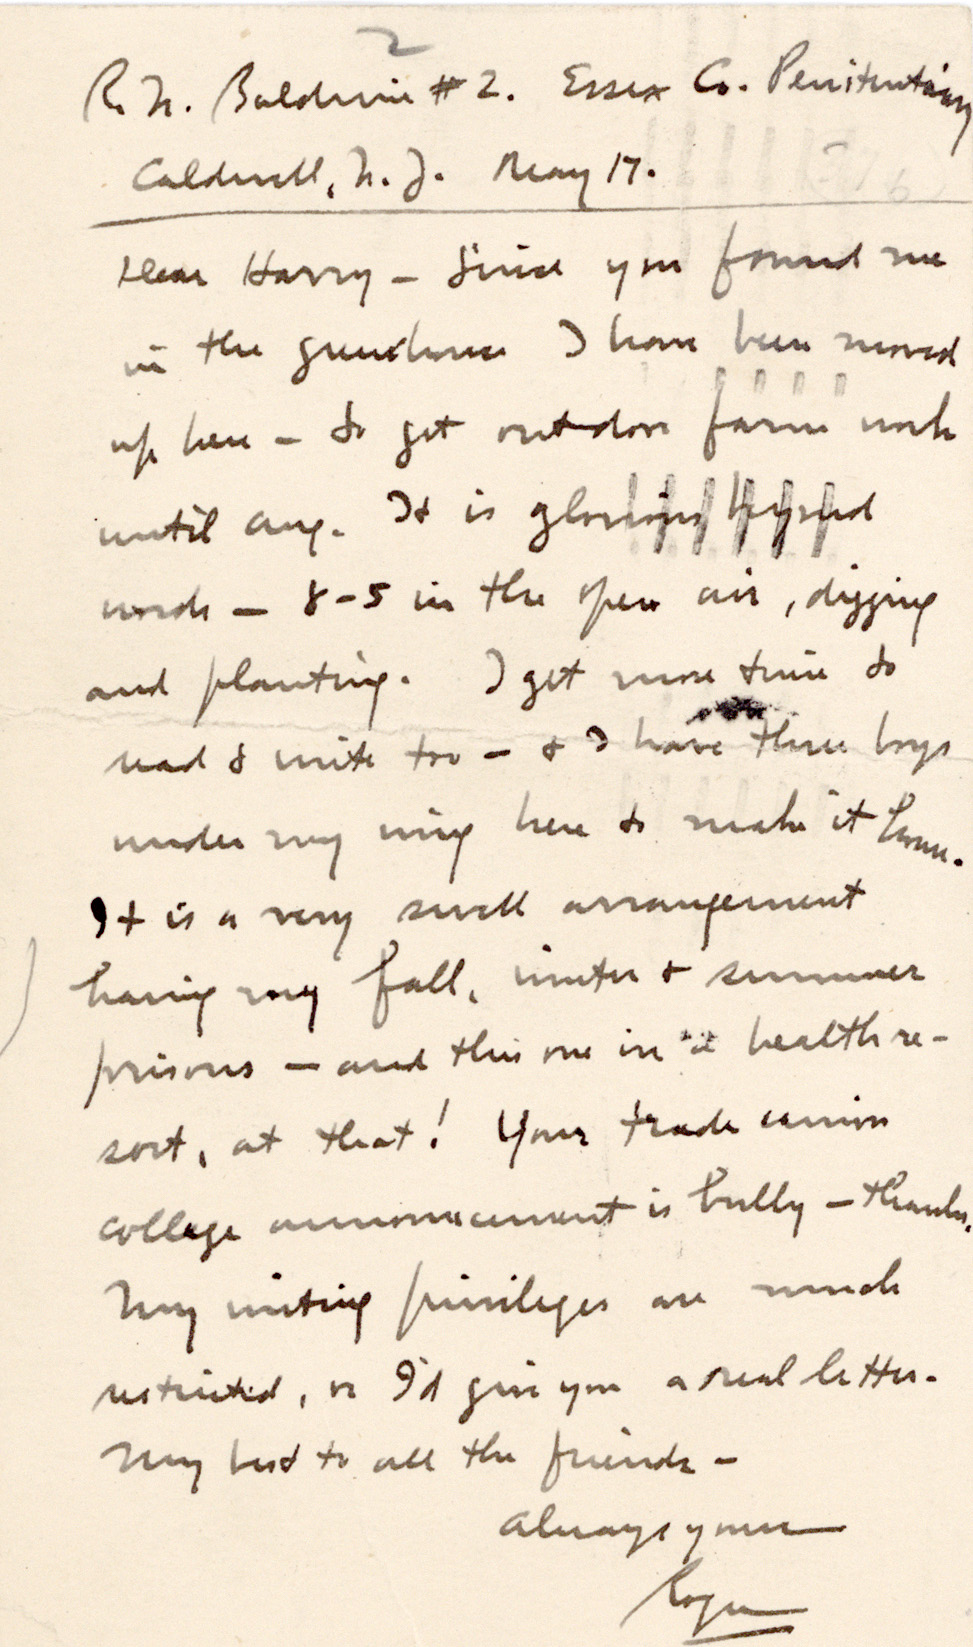 2
R. N. Baldwin #2. Essex Co. Penitentiary
Caldwell, N. J. May 17.
Dear Harry – Since you found me
in the greenhouse I have been moved
up here – to get outdoor farm work
until Aug. It is glorious beyond
words – 8-5 in the open air, digging
and planting. I get more time to
read & write too – & I have three boys
under my wing here to make it home.
It is a very swell arrangement
having my fall, winter & summer
prisons – and this one in a health re-
sort, at that! Your trade union
college announcement is bully – thanks.
My writing privileges are much
restricted, or I'd give you a real letter.
My best to all the friends –
Always yours
Roger